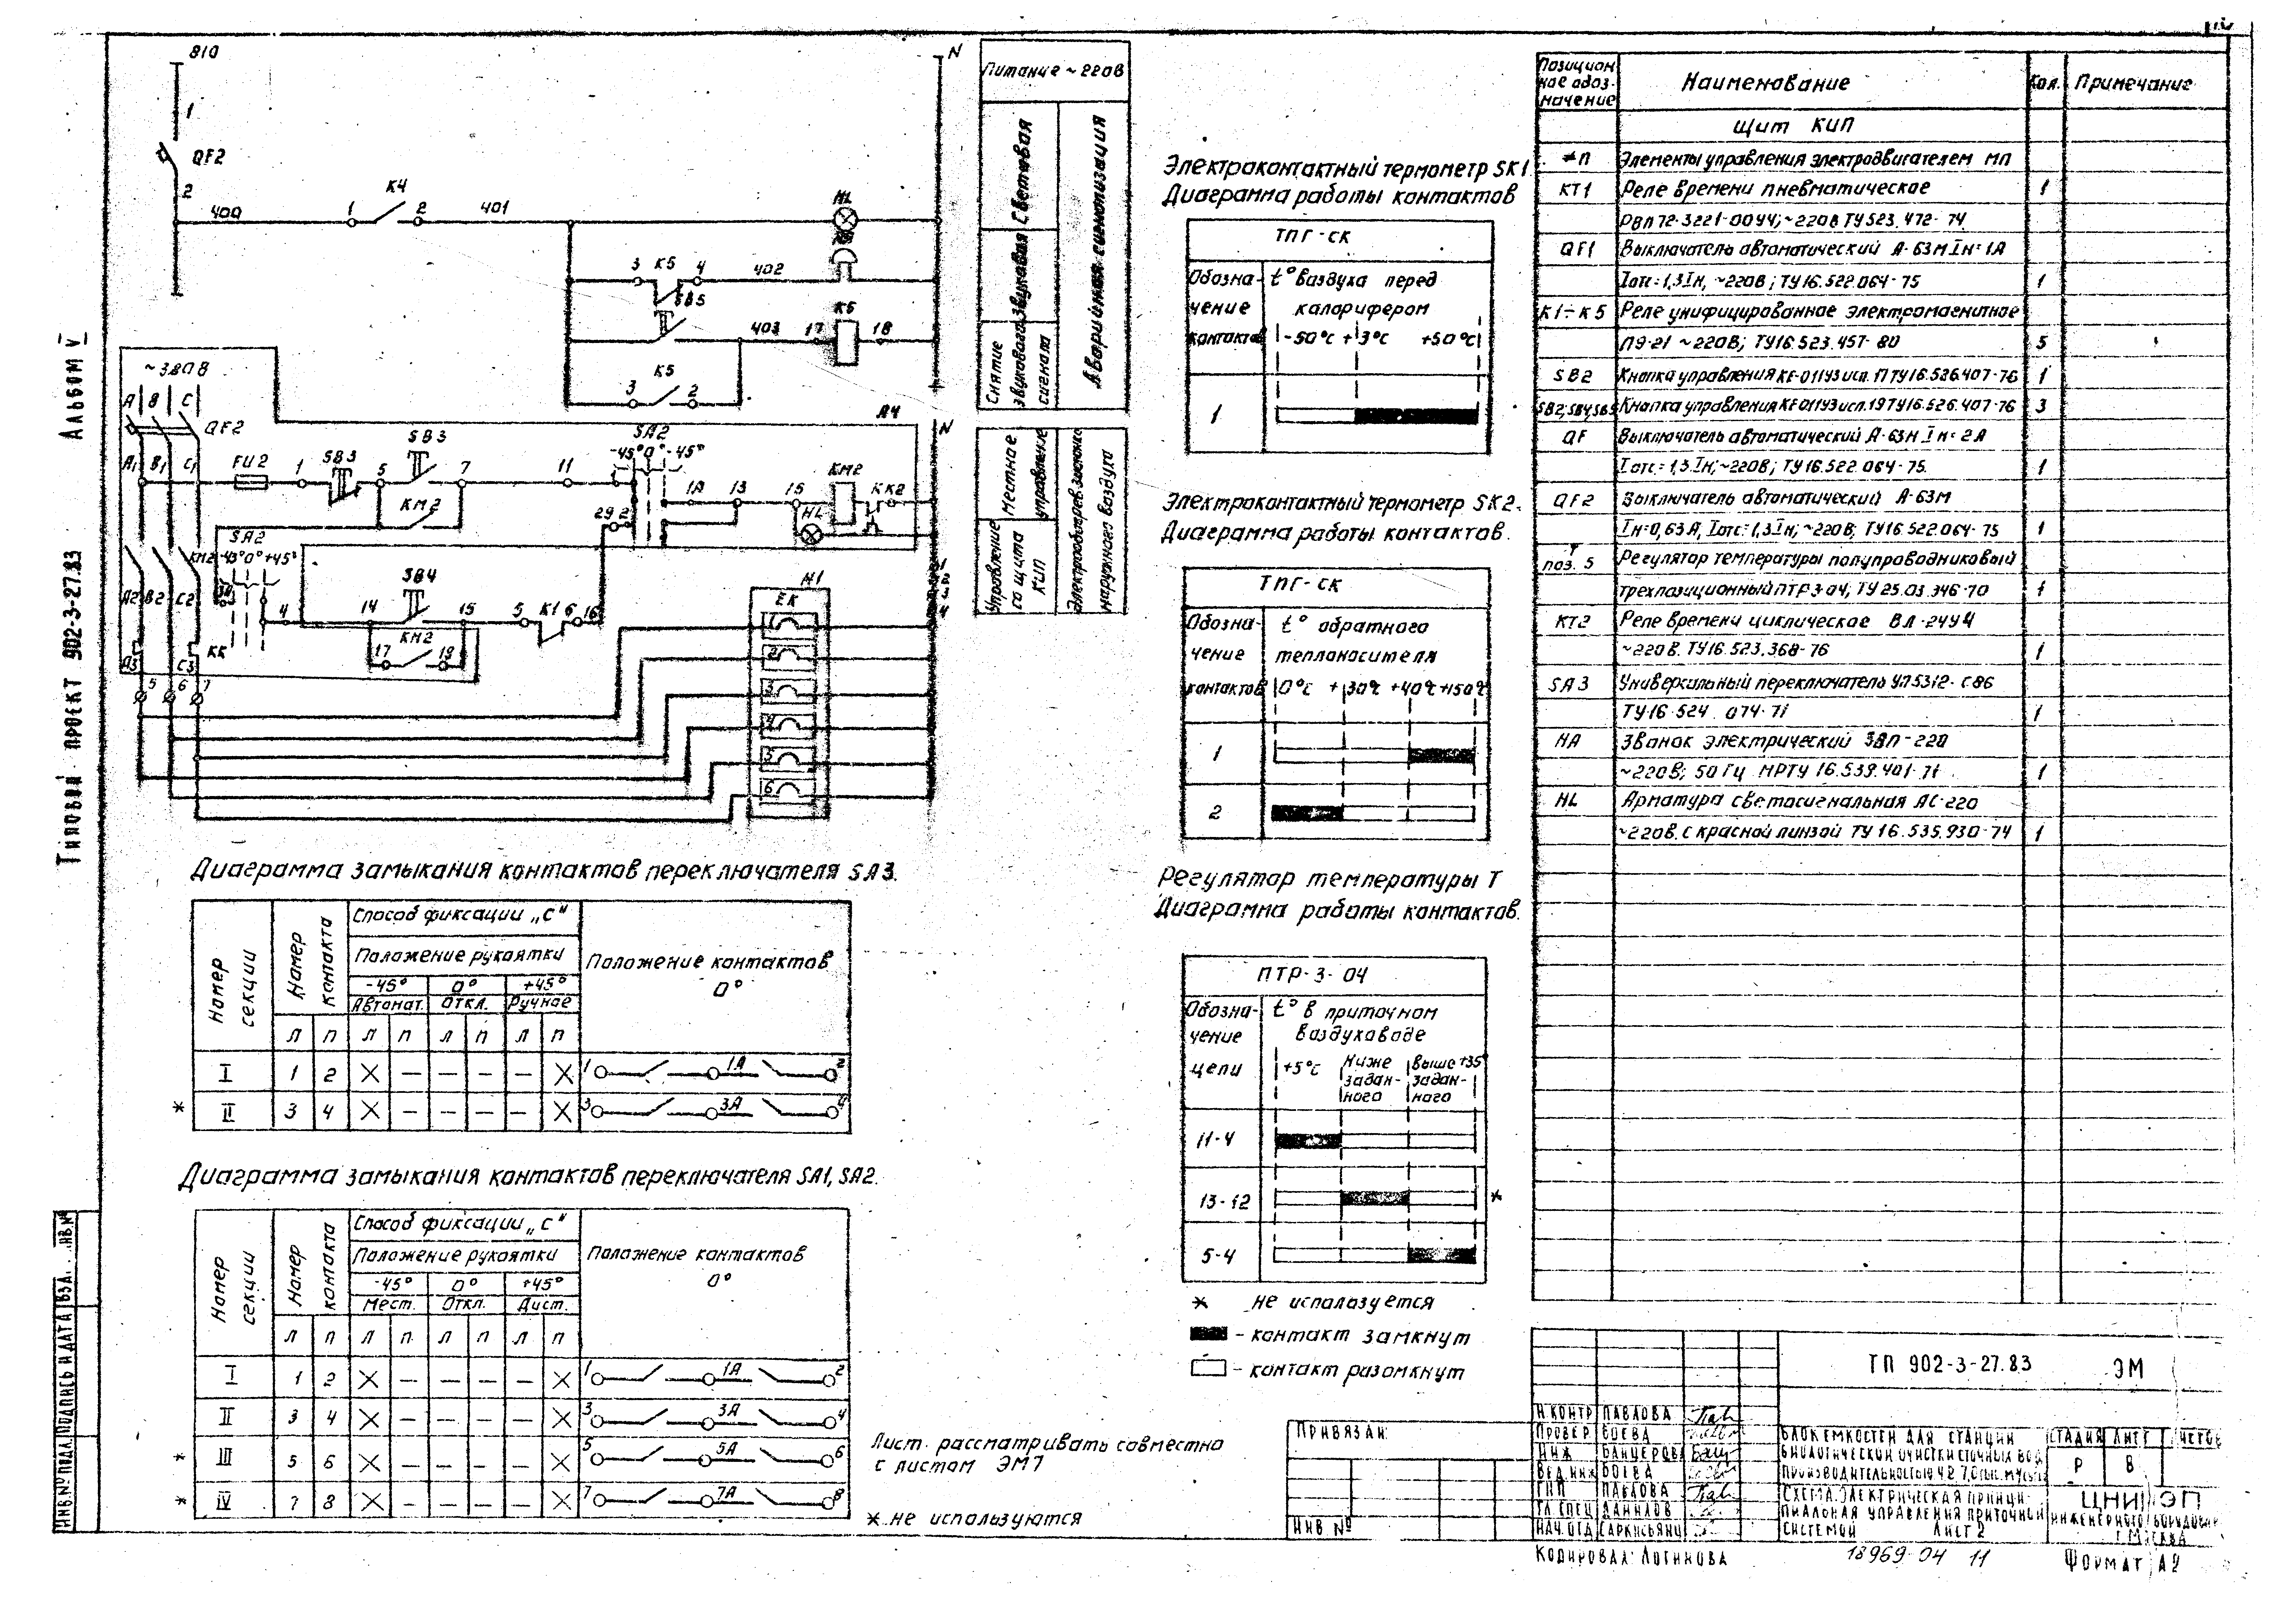 810
N
1
QF2
2
400
1
K4
2
401
HL
3
K5
4
402
SB5
K6
403
17
18
K5
3
2
Питание ~220В
Световая
Звуковая
Снятие звукового сигнала
Аварийная сигнализация
~380В
A B C
QF2
A1 B1 C1
FU2
1
SB3
5
SB3
7
11
SA2
-45° 0° -45°
A4
N
KM2
1A
13
15
KM2
KK2
HL
29
2
SA2
KM2 -45° 0° +45°
A2 B2 C2
4
14
SB4
15
5
K1
6
16
KM2
17
19
KK
A3
C3
5 6 7
H1
EK
1
2
3
4
5
6
1
2
3
4
Местное управление
Управление со щита КИП
Электрообогрев заслонки наружного воздуха
Альбом V
Типовой проект 902-3-27.83
Диаграмма замыкания контактов переключателя SA3.
Номер секции
Номер контакта
Способ фиксации „С"
Положение рукоятки
-45° 0° +45°
Автомат. Откл. Ручное
Положение контактов
0°
Л П Л П Л П Л П
I 1 2 X — — — — X 1 1А 2
* II 3 4 X — — — — X 3 3А 4
Диаграмма замыкания контактов переключателя SA1, SA2.
Номер секции
Номер контакта
Способ фиксации „С"
Положение рукоятки
-45° 0° +45°
Мест. Откл. Дист.
Положение контактов
0°
Л П Л П Л П Л П
I 1 2 X — — — — X 1 1А 2
II 3 4 X — — — — X 3 3А 4
* III 5 6 X — — — — X 5 5А 6
* IV 7 8 X — — — — X 7 7А 8
Лист рассматривать совместно
с листом ЭМ7
* не используются
Электроконтактный термометр SK1.
Диаграмма работы контактов
ТПГ-СК
Обозначение контактов
t° воздуха перед калорифером
-50°C +3°C +50°C
1
Электроконтактный термометр SK2.
Диаграмма работы контактов.
ТПГ-СК
Обозначение контактов
t° обратного теплоносителя
0°C +30°C +40°C +150°C
1
2
Регулятор температуры Т
Диаграмма работы контактов.
ПТР-3-04
Обозначение цепи
t° в приточном воздуховоде
+5°C
Ниже заданного
Выше заданного
+35°
11-4
13-12 *
5-4
* не используется
- контакт замкнут
- контакт разомкнут
Позиционное обозначение
Наименование
Кол.
Примечание
Щит КИП
≠П Элементы управления электродвигателем МП
КТ1 Реле времени пневматическое 1
РВП72-3221-00У4; ~220В ТУ523.472-74
QF1 Выключатель автоматический А-63М Iн=1А
Iотс=1,3Iн, ~220В; ТУ16.522.064-75 1
К1÷К5 Реле унифицированное электромагнитное
ПЭ-21 ~220В; ТУ16.523.457-80 5
SB2 Кнопка управления КЕ-011У3 исп. 17 ТУ16.526.407-76 1
SB2; SB4; SB5 Кнопка управления КЕ011У3 исп. 19 ТУ16.526.407-76 3
QF Выключатель автоматический А-63М Iн=2А
Iотс=1,3Iн; ~220В; ТУ16.522.064-75. 1
QF2 Выключатель автоматический А-63М
Iн=0,63А, Iотс=1,3Iн; ~220В; ТУ16.522.064-75 1
Т поз. 5 Регулятор температуры полупроводниковый
трехпозиционный ПТР 3-04; ТУ 25.03.346-70 1
КТ2 Реле времени циклическое ВЛ-24У4
~220В. ТУ16.523.368-76 1
SA3 Универсальный переключатель УП5312-С86
ТУ16-524.074-71 1
НА Звонок электрический ЗВП-220
~220В; 50Гц МРТУ 16.539.401-71 1
HL Арматура светосигнальная АС-220
~220В. с красной линзой ТУ 16.535.930-74 1
ТП 902-3-27.83 ЭМ
Привязан:
Инв №
Н.контр Павлова
Провер Боева
Инж Банцерова
Вед.инж Боева
ГИП Павлова
Гл.спец Данилов
Нач.отд Саркисьянц
Блок емкостей для станции
биологической очистки сточных вод
Схема электрическая принци-
пиальная управления приточной
системой Лист 2
Стадия Лист Листов
Р 8
ЦНИИЭП
инженерного оборудован.
г. Москва
Копировал: Логинова
18969-04 11
Формат А2
Инв.№ подл. Подпись и дата Вза. инв.№